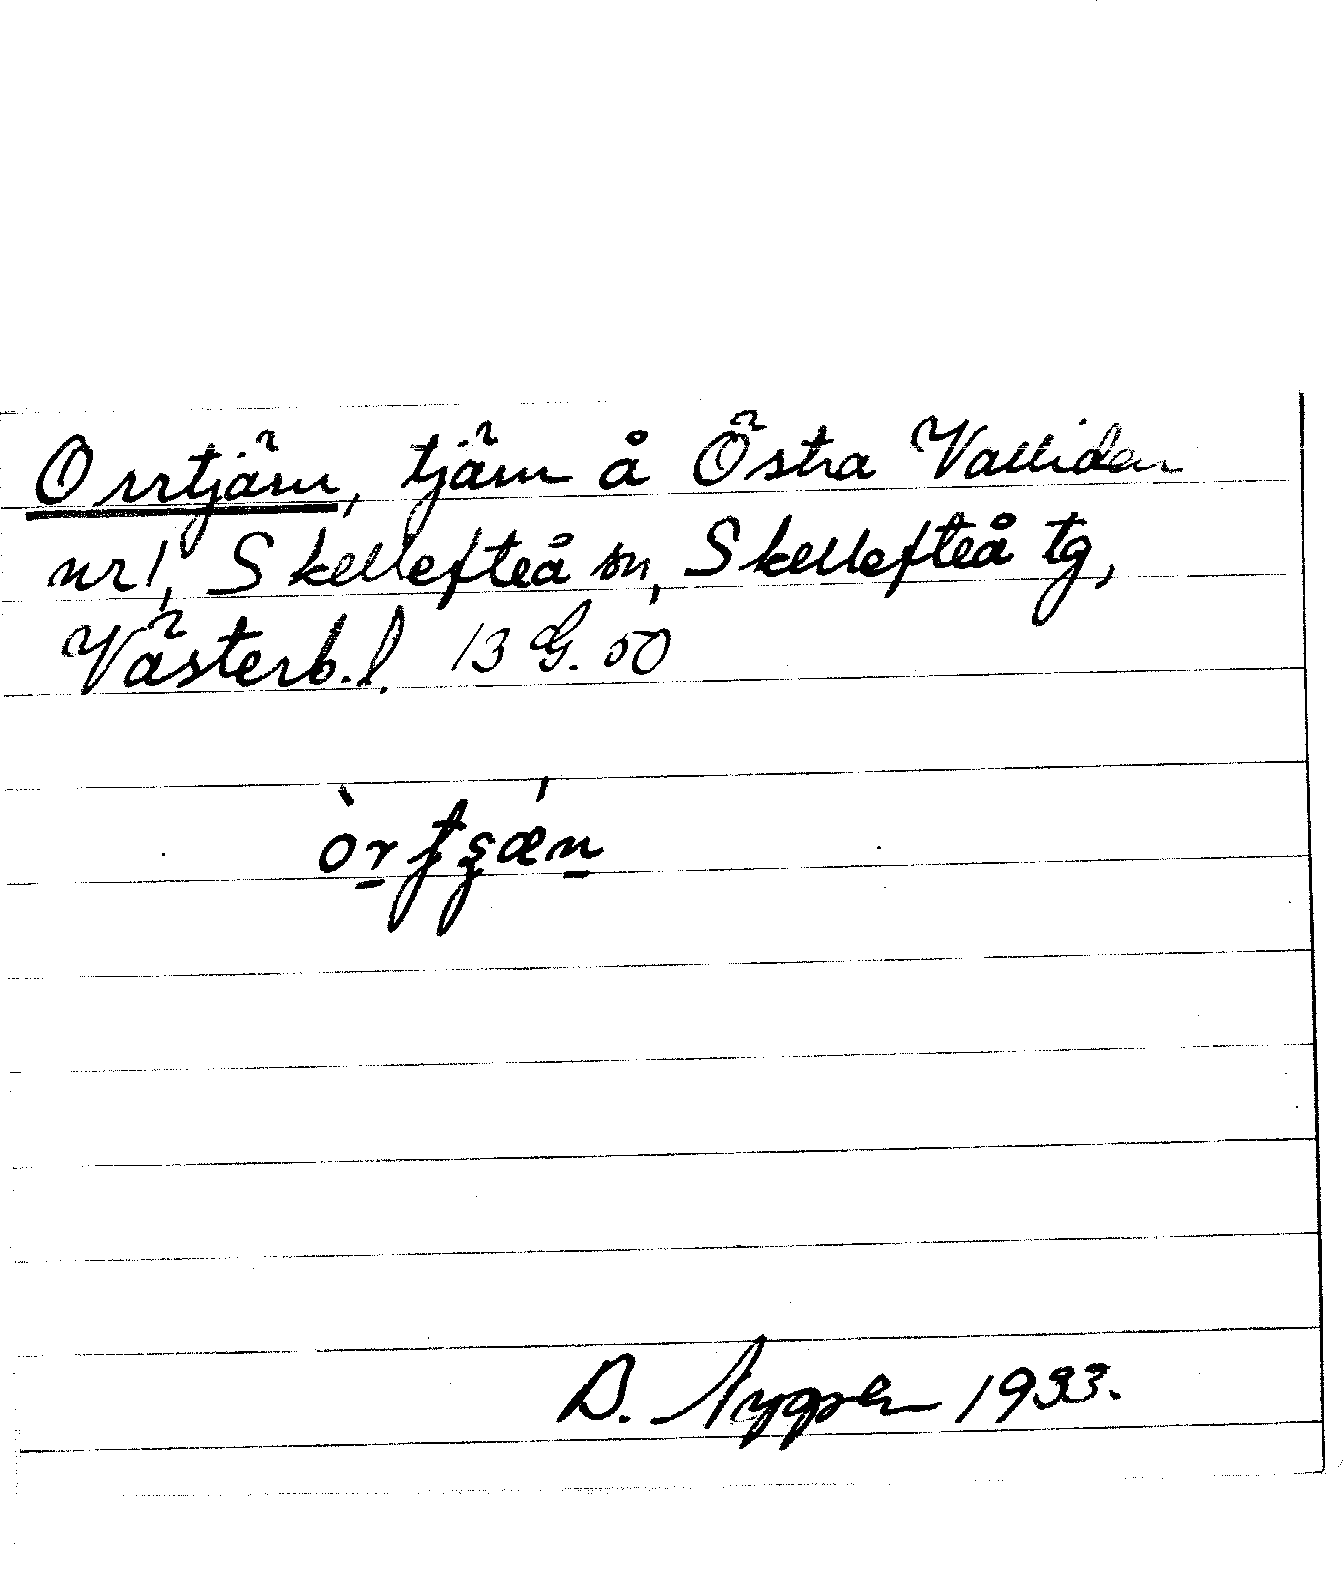 Orrtjärn, tjärn å Östra Valliden
nr 1, Skellefteå sn, Skellefteå tg,
Västerb. l. 13 G. 50
D. Nygren 1933.